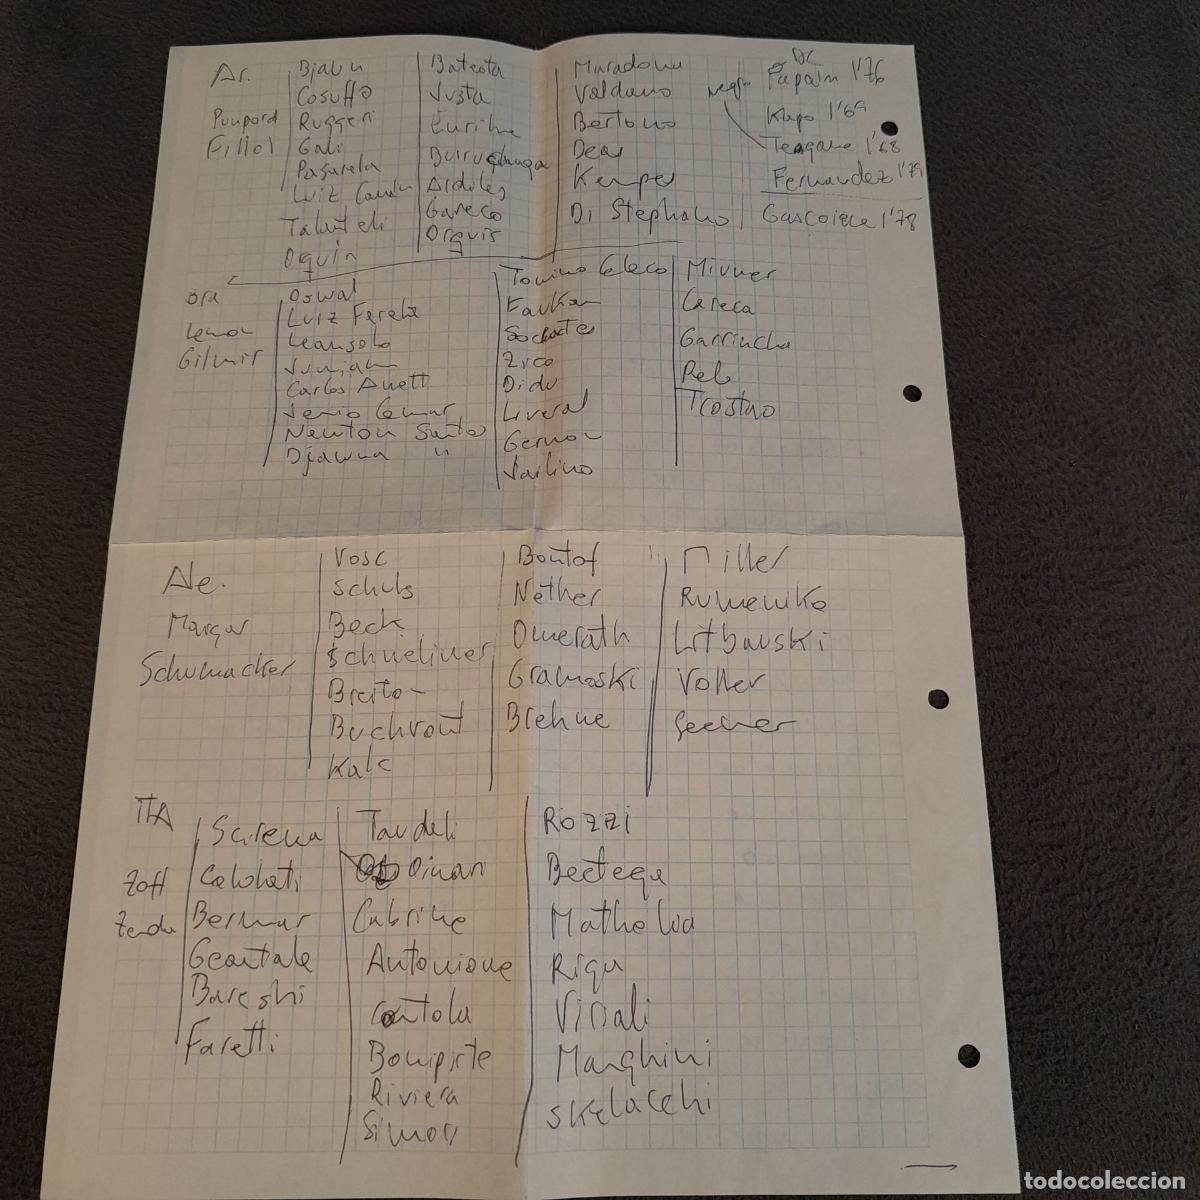 Ar.
Poupord
Fillol
Bjalu
Cosuffo
Ruggeri
Gali
Pasarela
Luiz
Talenteli
Oguin
Batesta
Justa
Eurihe
Burruchaga
Ardiles
Gareco
Orguis
Maradona
Valdano
Bertono
Deas
Kempes
Di Stephano
DC
negro
Papain 1'76
Kapo 1'69
Teogane 1'68
Fernandez 1'79
Gascoigne 1'78
Bra
Leaon
Gilmir
Oswal
Luiz Fereba
Leansolo
Junian
Carlos Auett
Newton Santos
Djawna "
Tonino Celeco
Faukan
Sochates
Zico
Didu
Liveral
Gernon
Jailino
Mivner
Careca
Garrincha
Pele
Trostao
Ale.
Margar
Schumacker
Vosc
Schuls
Beck
Schuelines
Breiton
Buchvout
Kalc
Bontof
Nether
Owerath
Gramoski
Brehne
Miller
Rumeniko
Litbauski
Voller
Seeler
ITA
Zoff
Zenda
Scirena
Caloloti
Bermar
Geantale
Bareshi
Faretti
Tardeli
Oinan
Cabrine
Antonione
Contola
Boniperte
Riviera
Simon
Rozzi
Bectega
Mathelia
Riga
Viriali
Manghini
Skelacehi
todocoleccion